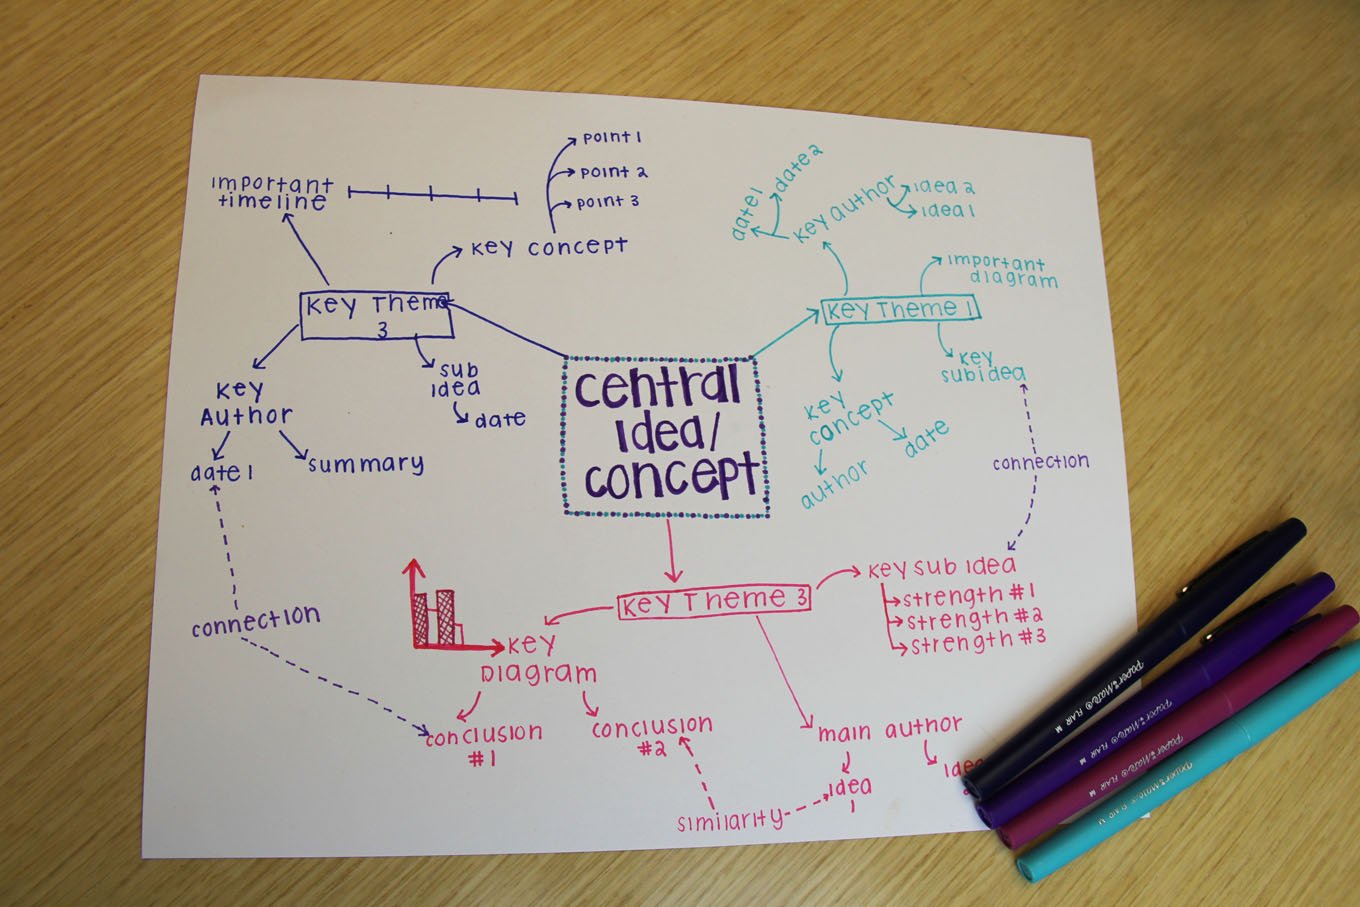 point 1
point 2
point 3
important
timeline
key concept
Key Theme
3
key
Author
date 1
summary
sub
idea
date
central
idea/
concept
date 1
date 2
key author
idea 2
idea 1
important
diagram
Key Theme 1
key
subidea
key
concept
date
author
connection
connection
Key Theme 3
key sub idea
strength #1
strength #2
strength #3
key
Diagram
conclusion
#1
conclusion
#2
main author
idea
1
similarity
Paper:Mate FLAIR M
Paper:Mate FLAIR M
Paper:Mate FLAIR M
Paper:Mate FLAIR M